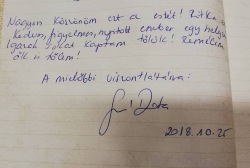 Nagyon köszönöm ezt a estét! Ritka
kedves, figyelmes, nyitott ember egy helyen
Igazán sokat kaptam tőlük! Remélem
ők is tőlem!
A mielőbbi viszontlátásra:
2018.10.25